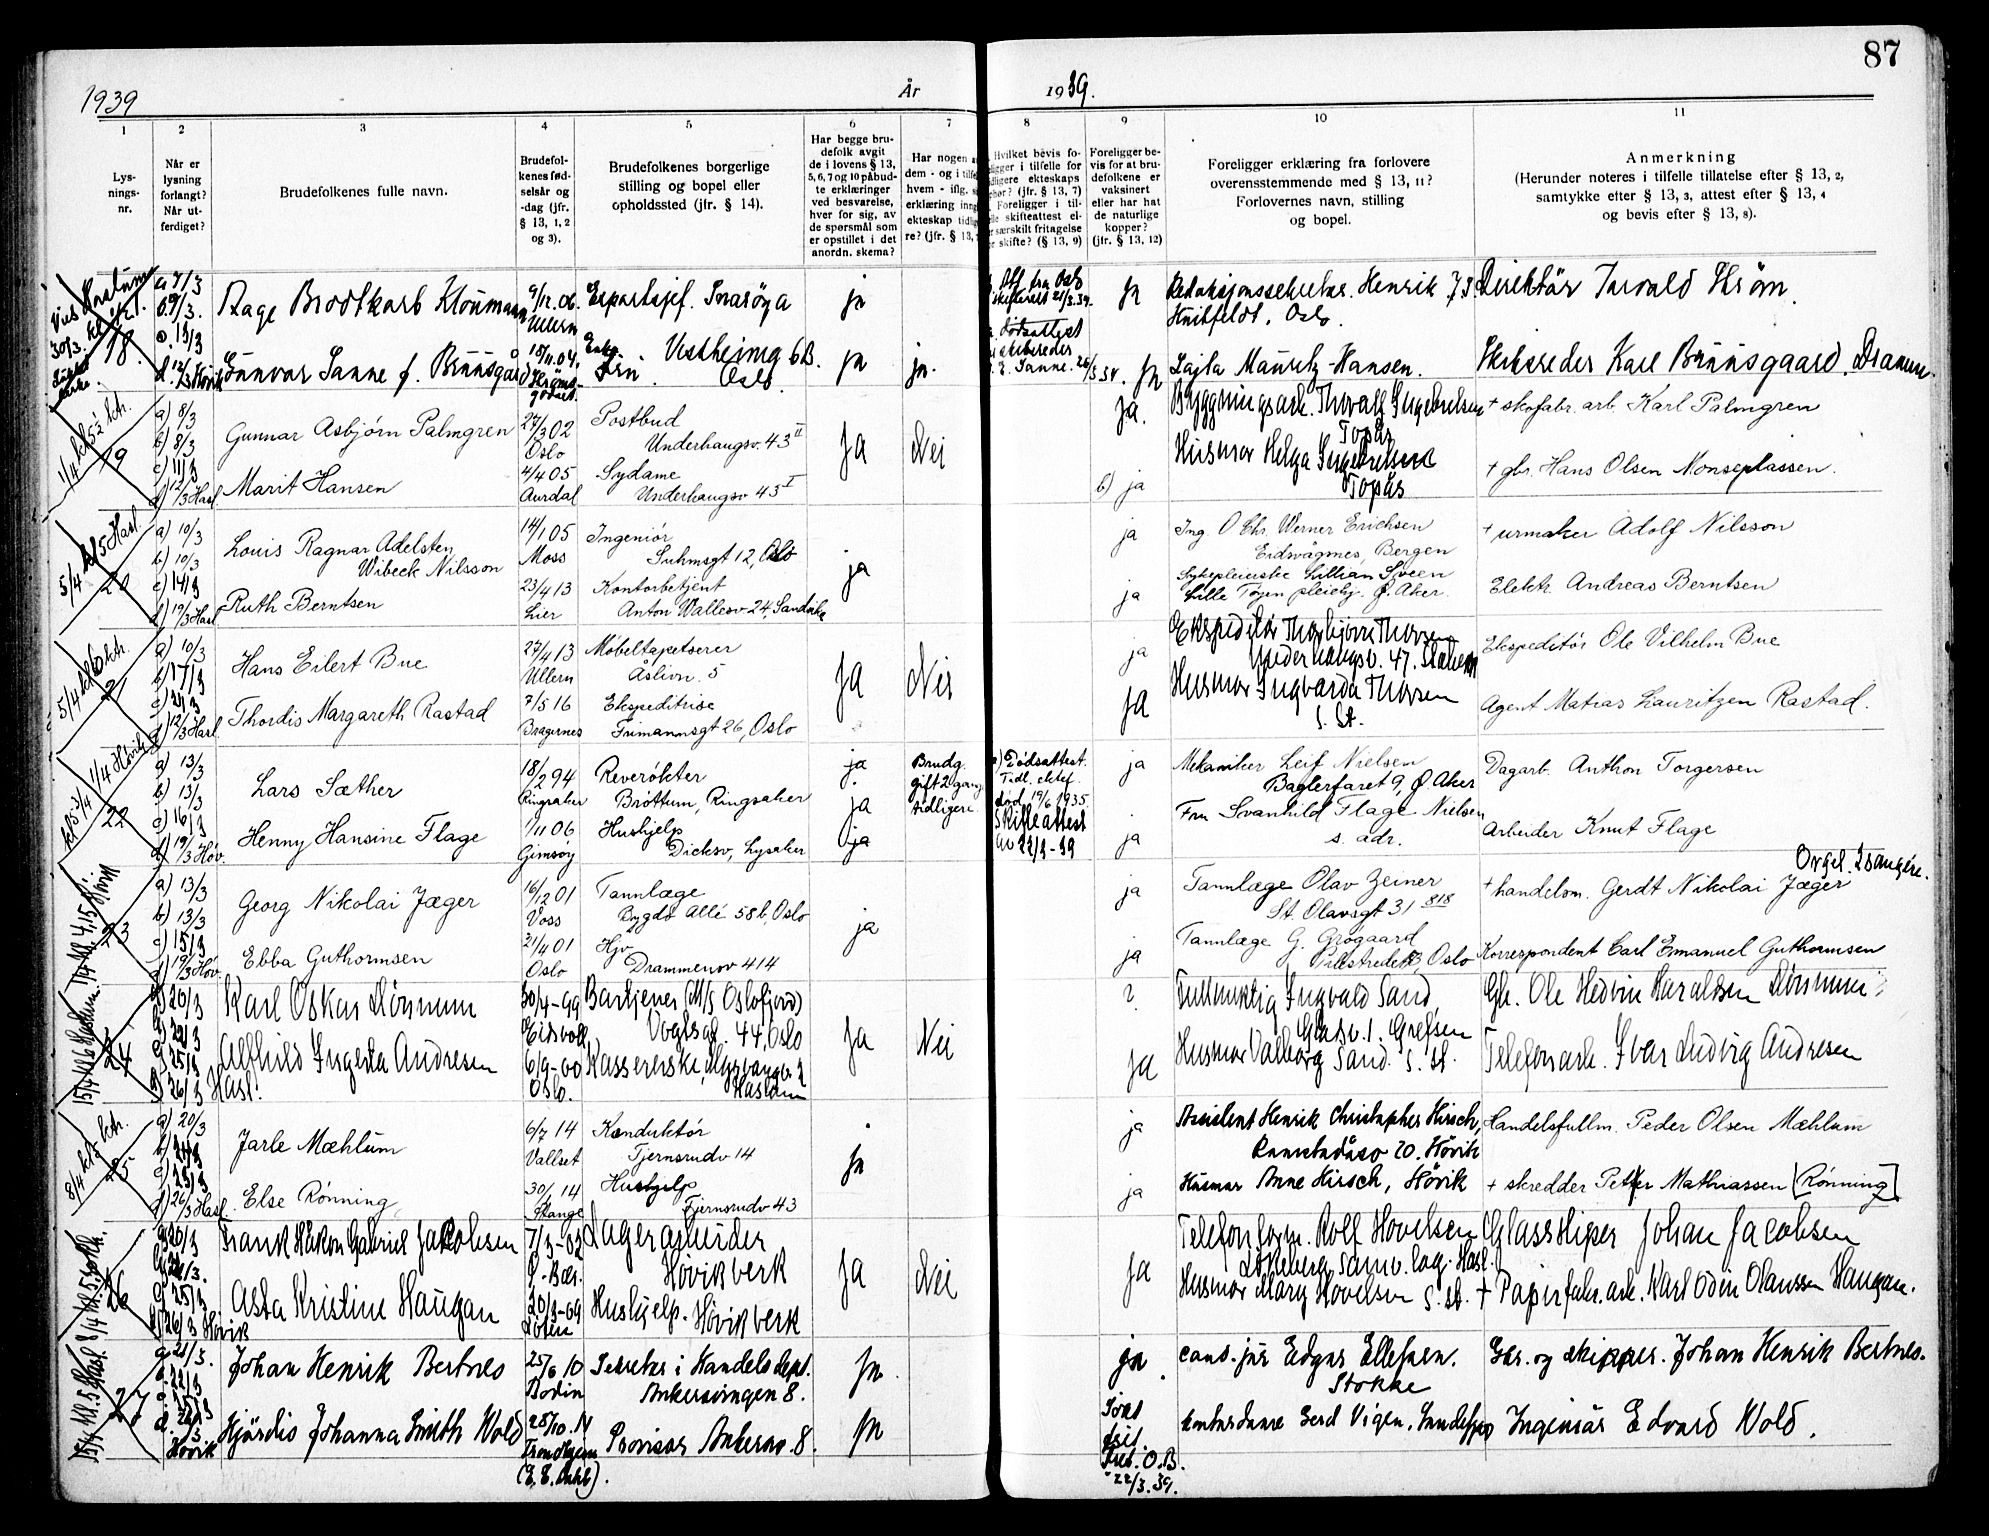 87
1939
År
1939.
1
2
3
4
5
6
7
8
9
10
11
Lys-
nings-
nr.
Når er
lysning
forlangt?
Når ut-
ferdiget?
Brudefolkenes fulle navn.
Brudefol-
kenes fød-
selsår og
-dag (jfr.
§ 13, 1, 2
og 3).
Brudefolkenes borgerlige
stilling og bopel eller
opholdssted (jfr. § 14).
Har begge bru-
defolk avgit
de i lovens § 13,
5, 6, 7 og 10 påbud-
te erklæringer
ved besvarelse,
hver for sig, av
de spørsmål som
er opstillet i det
anordn. skema?
Har nogen
dem - og i tilfe
hvem - iflg.
erklæring inng
ekteskap tidli
re? (jfr. § 13,
Hvilket bevis fo-
ligger i tilfelle for
dligere ekteskaps
phør? (jfr. § 13, 7)
Foreligger i til-
elle skifteattest el-
r særskilt fritagelse
r skifte? (§ 13, 9)
Foreligger be-
vis for at bru-
defolkene er
vaksinert
eller har hat
de naturlige
kopper?
(jfr. § 13, 12)
Foreligger erklæring fra forlovere
overensstemmende med § 13, 11?
Forlovernes navn, stilling
og bopel.
Anmerkning
(Herunder noteres i tilfelle tillatelse efter § 13, 2,
samtykke efter § 13, 3, attest efter § 13, 4
og bevis efter § 13, 8).
18.
a 7/3
Aage Brodtkorb Kloumann
9/12.06.
Ullern
Snarøya
ja
ja
Redaksjonssekretær. Henrik J. S.
Huitfeldt. Oslo.
Direktør Torvald Strøm.
d. 12/3 Høvik
Gunvor Sanne f. Brunsgård
15/11.04.
Fru. Vestheimg 6B.
Oslo
ja
ja.
ja
Lajla Mauritz-Hansen.
Skibsreder Karl Brunsgaard. Drammen.
1/4 kl 5½ ktr.
19
a) 8/3
b) 8/3
c) 11/3
d) 12/3 Hasl
Gunnar Asbjørn Palmgren
27/3 02
Oslo
Postbud
Underhaugsv. 43 II
Ja
Nei
Ja.
Bygningsarb. Thoralf Ingebretsen
Topås
+ skofabr. arb. Karl Palmgren
Marit Hansen
4/4 05
Aurdal
Sydame
Underhaugsv 43 I
b) ja
Husmor Helga Ingebretsen
Topås
+ gbr. Hans Olsen Monseplassen.
5/4 kl 5 Hasl
20
a) 10/3
b) 10/3
c) 14/3
d) 19/3 Hasl
Louis Ragnar Adelsten
Wibeck Nilsson
14/1 05
Moss
Ingeniør
Suhmsgt 12, Oslo
ja
ja
Ing. O Chr. Werner Erichsen
Eidsvågnes, Bergen
+ urmaker Adolf Nilsson
Ruth Berntsen
23/4 13
Lier
Kontorbetjent
Anton Wallesv 24, Sandvika
ja
Sykepleierske Lillian Sveen
Lille Tøyen pleiehj. Ø. Aker.
Elektr. Andreas Berntsen
5/4 kl 6 ktr.
21
a) 10/3
b) 17/3
c) 21/3
d) 12/3 Hasl
Hans Eilert Bue
27/4 13
Ullern
Møbeltapetserer
Åslivn. 5
Ja
Nei
ja
Ekspeditør Thorbjørn Thorsen
Underhaugsv. 47. Stabekk
Ekspeditør Ole Vilhelm Bue
Thordis Margareth Rastad
7/5 16
Bragernes
Ekspeditrise
Frimannsgt 26, Oslo
Ja
Husmor Ingvarda Thorsen
s. st.
Agent Matias Lauritzen Rastad.
1/4 Høvik
22
a) 13/3
b) 13/3
c) 16/3
d) 19/3 Høv.
Lars Sæther
18/2 94
Ringsaker
Reverøkter
Brøttum, Ringsaker
ja
ja
Brudg.
gift 2 gang
tidligere
a) Dødsattest.
Tidl. ektef.
død 19/6 1935.
Skifteattest
av 22/3-39
ja
Mekaniker Leif Nielsen
Baglerfaret 9, Ø. Aker
Dagarb. Anthon Torgersen
Henny Hansine Flage
1/11 06
Gimsøy
Hushjelp
Dicksv, Lysaker
ja
ja
Fru Svanhild Flage Nielsen
s. adr.
Arbeider Knut Flage
Orgel.
23
a) 13/3
b) 13/3
c) 15/3
d) 19/3 Høv.
Georg Nikolai Jæger
16/12 01
Voss
Tannlæge
Bygdø Allé 58b, Oslo
ja
ja
Tannlæge Olav Zeiner
St. Olavsgt 31 818
+ handelsm. Gerdt Nikolai Jæger
Ebba Guthormsen
21/4 01
Oslo
Hjv.
Drammensv 414
ja
Tannlæge G. Grøgaard
Pilestredet, Oslo
Korrespondent Carl Emanuel Guthormsen
24
a) 20/3
d) 26/3 Hasl.
Karl Oskar Lønnum
30/4-99
Eidsvoll
Bartjener (M/S Oslofjord)
Vogtsgt. 44, Oslo
Ja
Nei
?
Fullmektig Ingvald Sand,
Glads v. 1. Grefsen
Gb. Ole Hedvin Haraldsen Lønnum
Alfhild Ingerda Andresen
6/9-00
Oslo.
Kassererske,
Haslum
Ja
Husmor Valborg Sand. s. st.
Telefonarb. Ivar Ludvig Andresen
8/4 kl 5 ktr.
25
a) 20/3
d) 26/3 Hasl.
Jarle Mæhlum
6/7 14
Vallset
Konduktør
Tjernsrudv 14
ja
ja
Assistent Henrik Christopher Hirsch,
Ramstadåsv 20. Høvik
Handelsfullm. Peder Olsen Mæhlum
Else Rønning
30/ 14
Stange
Hushjelp
Tjernsrudv 43
ja
Husmor Anne Hirsch, Høvik
+ skredder Petter Mathiassen [Rønning]
26
a) 20/3
c) 25/3
d) 26/3 Høvik
Frank Håkon Gabriel Jacobsen
7/3-02
Ø. Bær.
Lagerarbeider
Høvik verk
Ja
Nei
Ja
Telefonform. Rolf Hovelsen
Løkeberg Samv. lag. Hasl.
Glassliper Johan Jacobsen
Asta Kristine Haugan
20/3-09
Løten
Hushjelp. Høvik verk
Husmor Mary Hovelsen s. st.
+ Papirfabr. arb. Karl Odin Olaussen Haugan.
27
a. 21/3.
Høvik
Johan Henrik Bertnes
25/6 10
Bodin
Sekretær i Handelsdept.
Ankersvingen 8.
ja
ja
cand. jur Edgar Ellefsen.
Stokke
Gbr. og skipper. Johan Henrik Bertnes.
Hjördis Johanna Smith Wold
28/10. 14
Trondhjem
Provisor Ankersv. 8.
ja
O.B.
22/3.39.
Kontordame Gerd Vigen.
Ingeniör Edvard Wold.